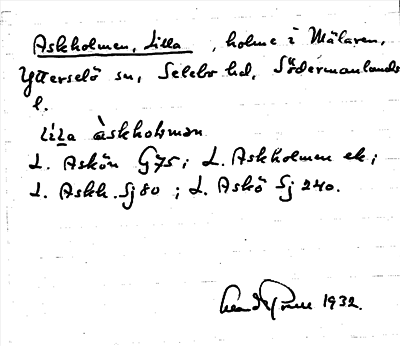 Askholmen, Lilla, holme i Mälaren,
Ytterselö sn, Selebo hd, Södermanlands
l.
lilla àskholmən
L. Askön G75; L. Askholmen ek;
L. Askh. Sj 80; L. Askö Sj 240.
1932.